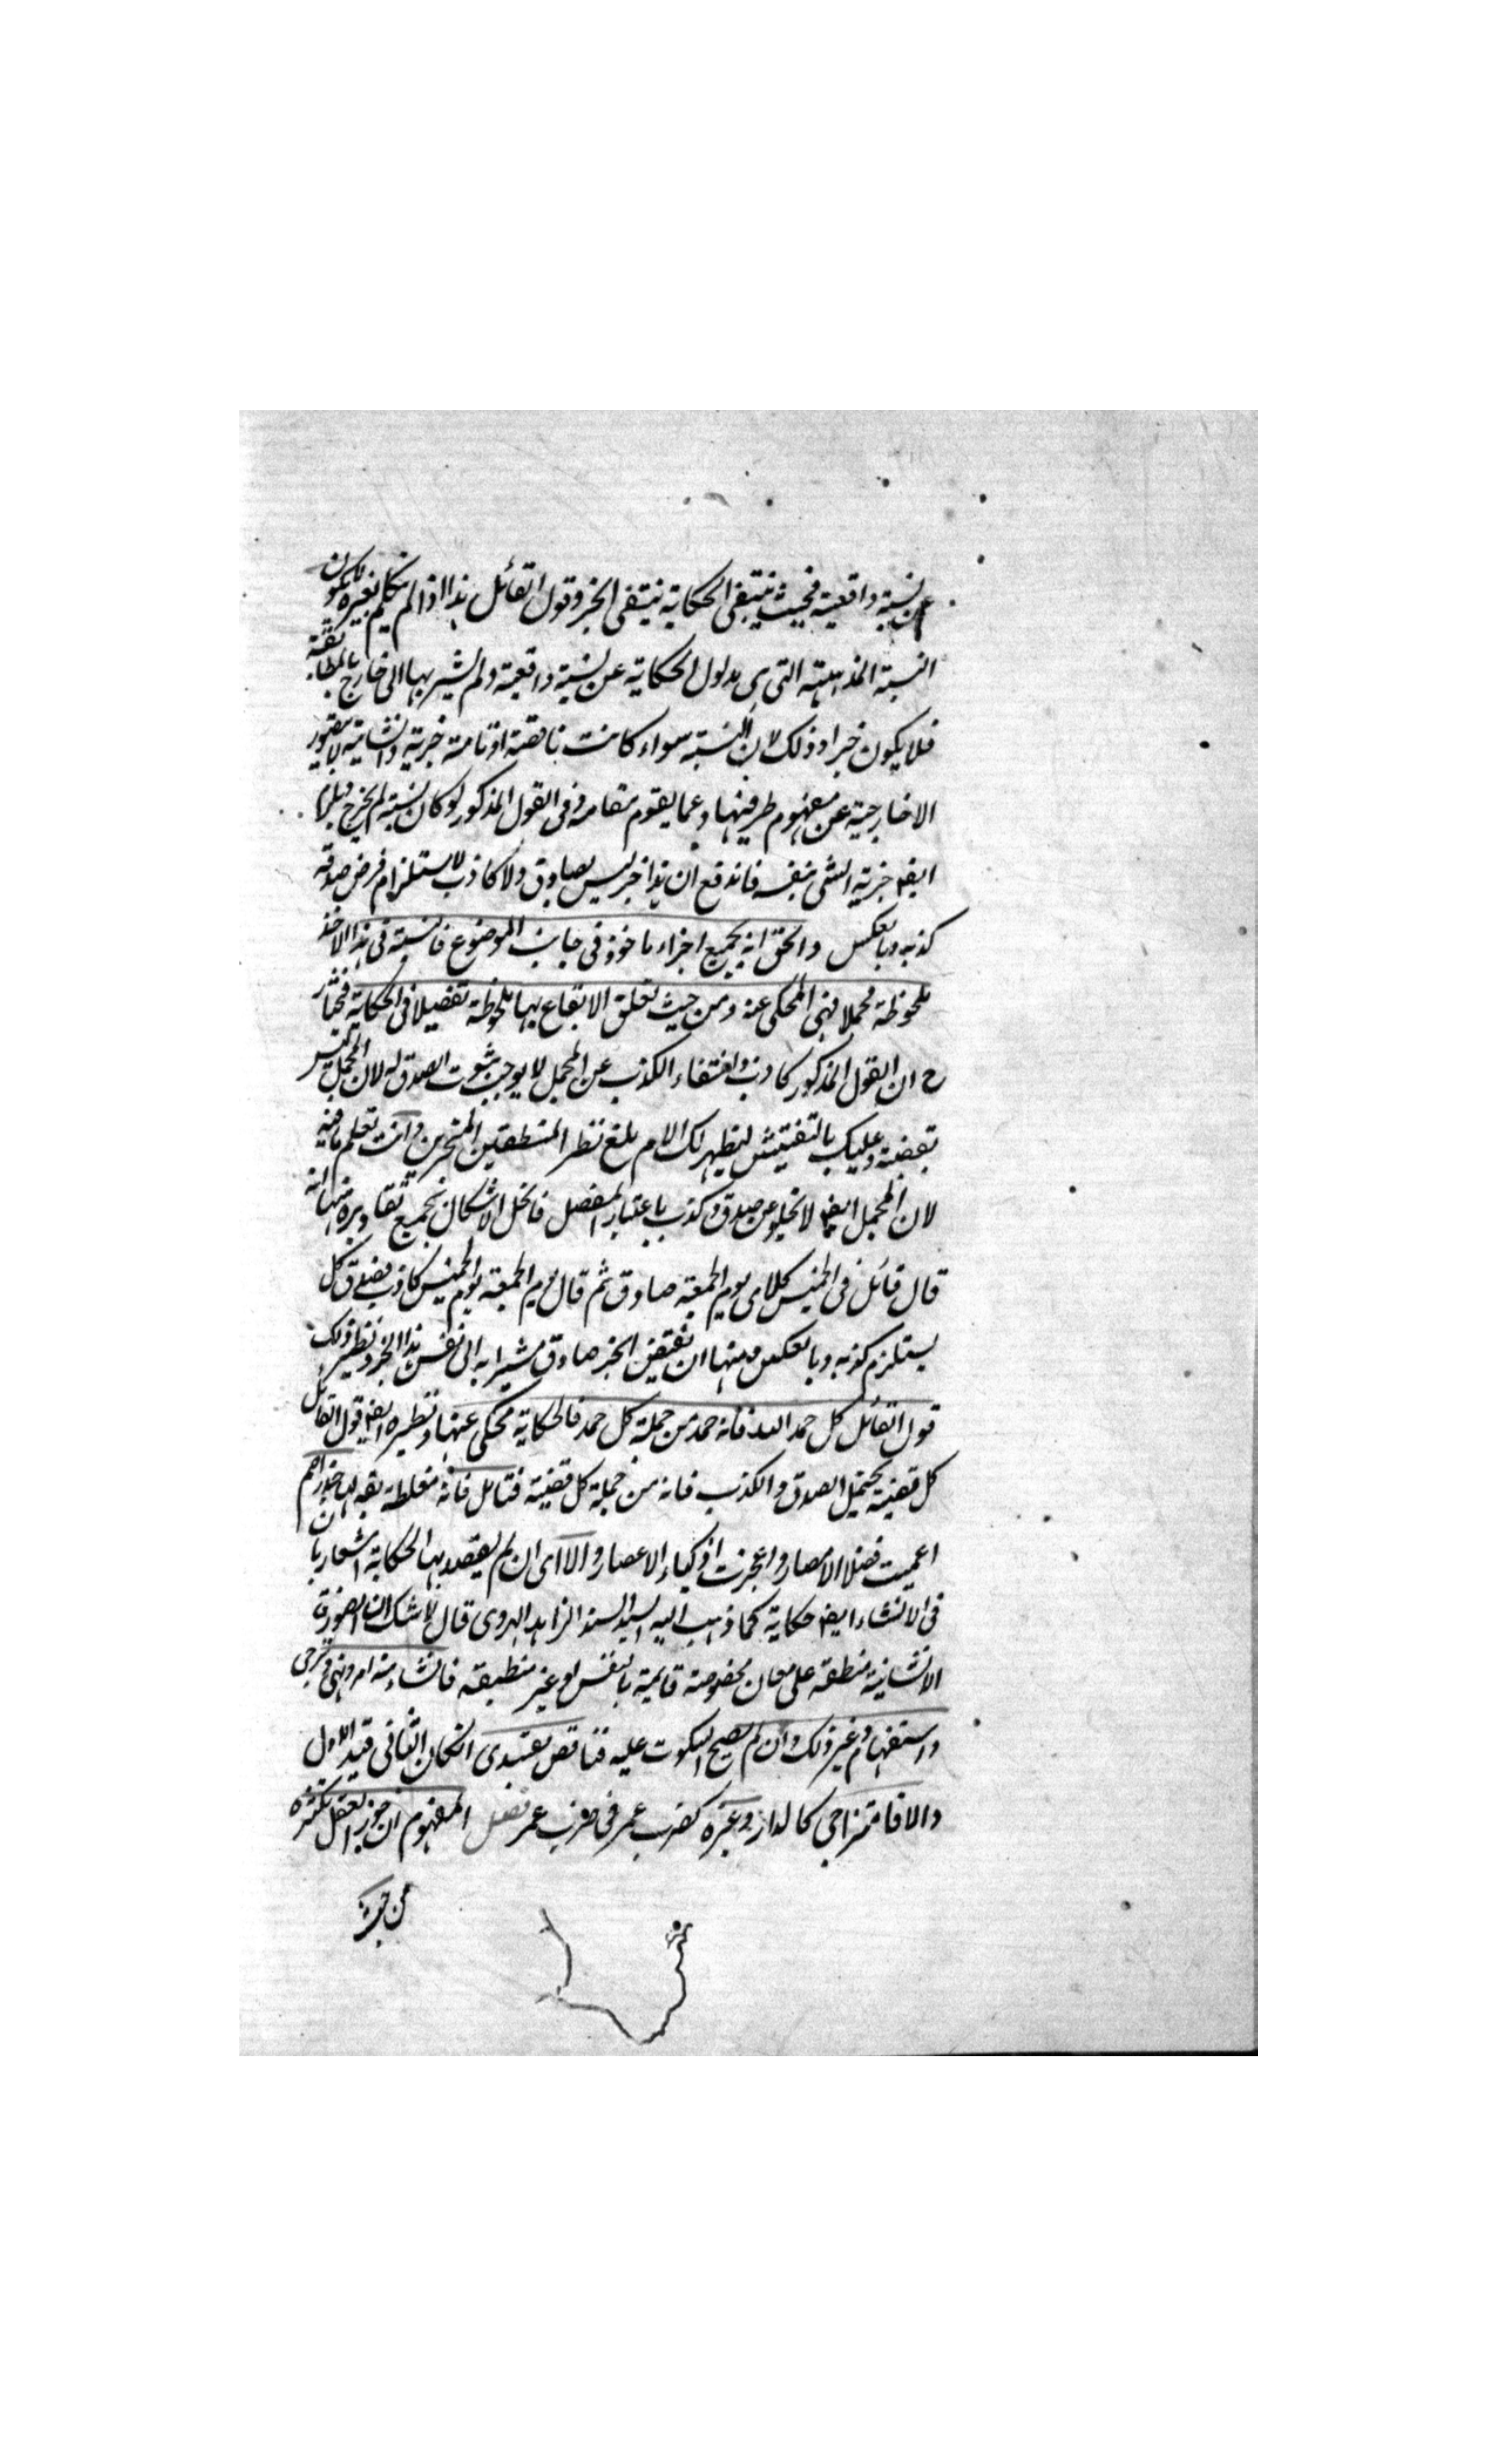 عن نسبة واقعية فحيث ينتفى الحكاية ينتفى الخبر وقول القائل هذا اذا لم يتكلم بغيره لا يكون
النسبة الذهنية التى هى مدلول الحكاية عن نسبة واقعية ولم يشير بها الى خارج بالمطابقة
فلا يكون خبرا وذلك لان النسبة سواء كانت ناقصة او تامة خبرية وانشائية لا يتصور
الا خارجية عن مفهوم طرفيها وعما يقوم مقامه وفى القول المذكور لو كان نسبة لم يخرج
ايضا خبرية الشى بنفسه فاندفع ان هذا خبر ليس بصادق ولا كاذب لاستلزام فرض صدقه
كذبه وبالعكس والحق انه بجميع اجزاء ماخوذ فى جانب الموضوع فالنسبة فى هذا الاخذ
ملحوظة مجملا فهى المحكى عنه ومن حيث تعلق الايقاع بها ملحوظة تفصيلا فى الحكاية فنختار
ح ان القول المذكور كاذب وانتفاء الكذب عن المجمل لا يوجب ثبوت الصدق له لان المجمل ليس
بقضية وعليك بالتفتيش ليظهر لك الام بلغ نظر المنطقيين المتبحرين وانت تعلم ما فيه
لان المجمل ايضا لا تخلو عن صدق وكذب باعتبار المفصل فانحل الاشكال بجميع تقاديره منها انه
قال قائل فى الخميس كلامى يوم الجمعة صادق ثم قال يوم الجمعة يوم الخميس كاذب فصدق كل
يستلزم كذبه وبالعكس ومنها ان نقيض الخبر صادق مشيرا به الى نفس هذا الخبر ونظير ذلك
قول القائل كل حمد لله فانه حمد من جملة كل حمد فالحكاية محكى عنها ونظيره ايضا قول القائل
كل قضية يحتمل الصدق والكذب فانه من جملة كل قضية فتامل فانه مغلطة
اعميت فضلا الامصار واعجزت اذكياء الاعصار والا اى ان لم يقصد بها الحكاية اشعار بان
فى الانشاء ايضا حكاية كما ذهب اليه السيد السند الزاهد الهروى قال لا شك ان الصورة
الانشائية منطبقة على معان مخصوصة قائمة بالنفس او غير منطبقة فانشاء منه امر ونهى وترجى
واستفهام وغير ذلك وان لم يصح السكوت عليه فناقص تقييدى ان كان الثانى قيد الاول
والا فامتزاجى كالدار وغيره كضرب عمر فى ضرب عمر فصل المفهوم ان جوز العقل تكثره
من حيث